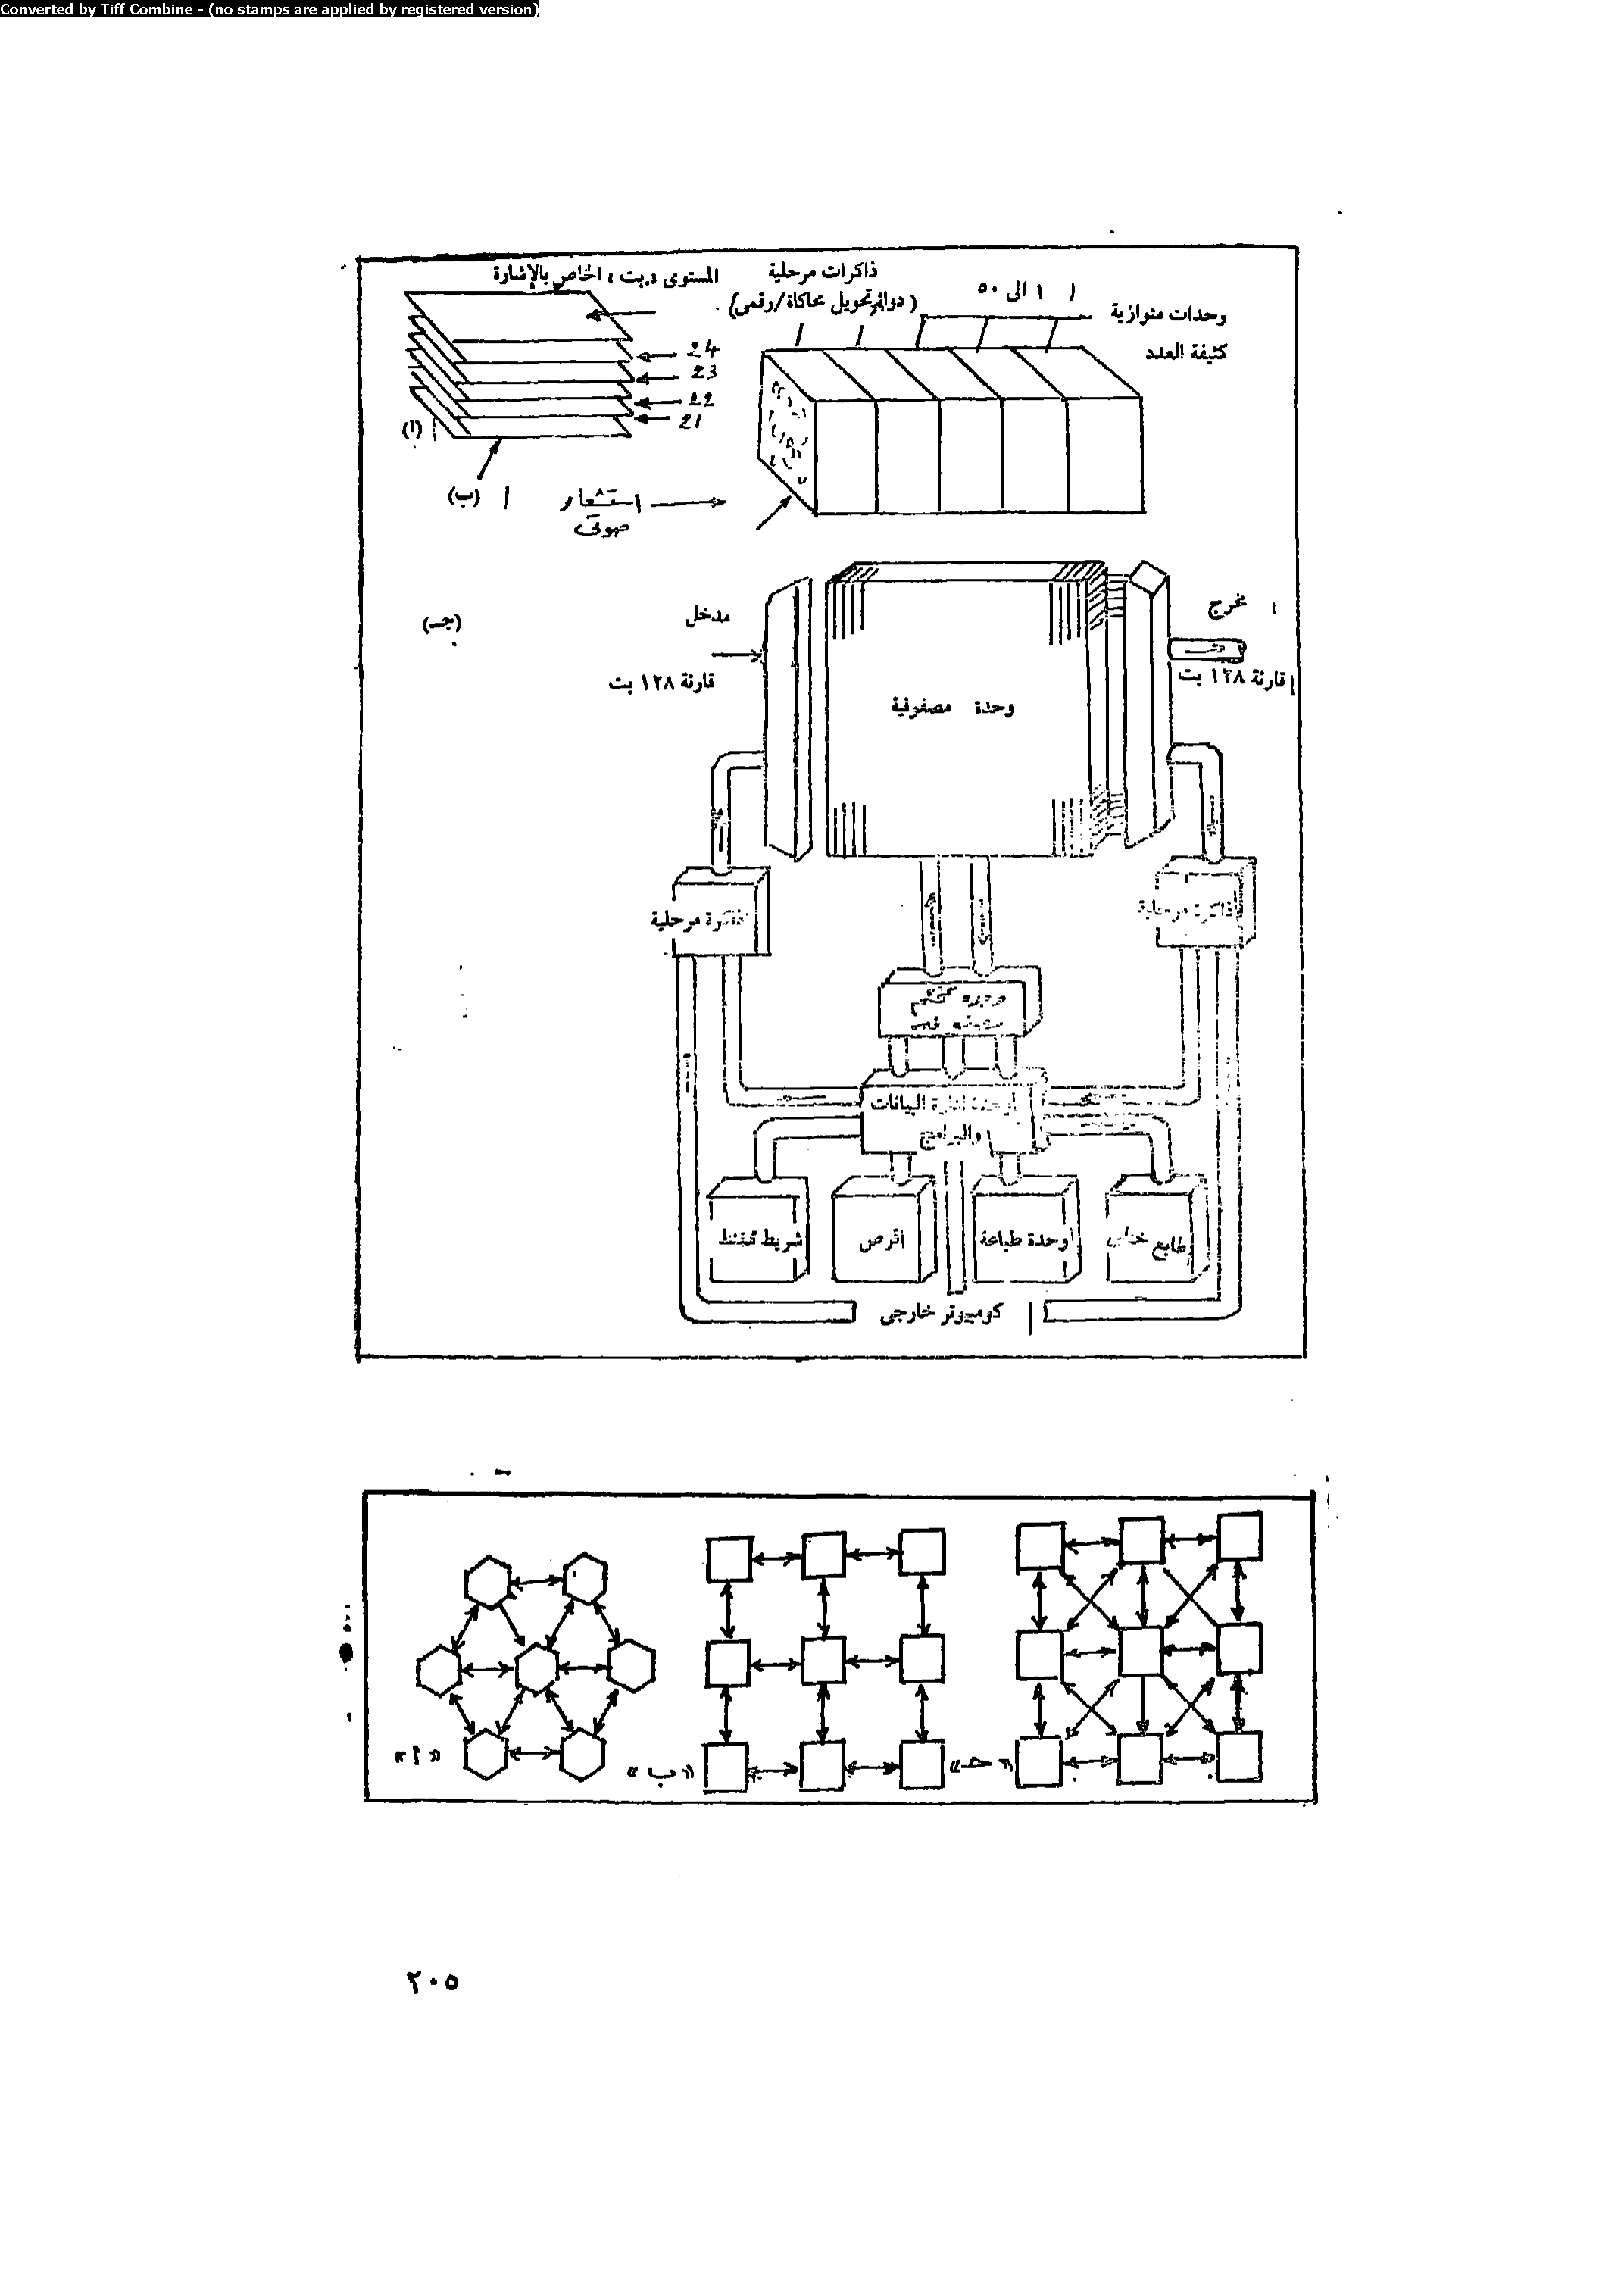 Converted by Tiff Combine - (no stamps are applied by registered version)
المستوى «بت» الخاص بالإشارة
ذاكرات مرحلية
(دوائر تحويل محاكاة/رقمى)
١ الى ٥٠
وحدات متوازية
كثيفة العدد
24
23
22
21
(أ)
(ب)
استشعار
ضوئى
(جـ)
مدخل
قارنة ١٢٨ بت
وحدة مصفوفية
مخرج
قارنة ١٢٨ بت
ذاكرة مرحلية
ذاكرة مرحلية
وحدة تحكم
وحدة ادارة البيانات
والبرامج
شريط ممغنط
قرص
وحدة طباعة
طابع خطى
كومبيوتر خارجى
«أ»
«ب»
«جـ»
٢٠٥